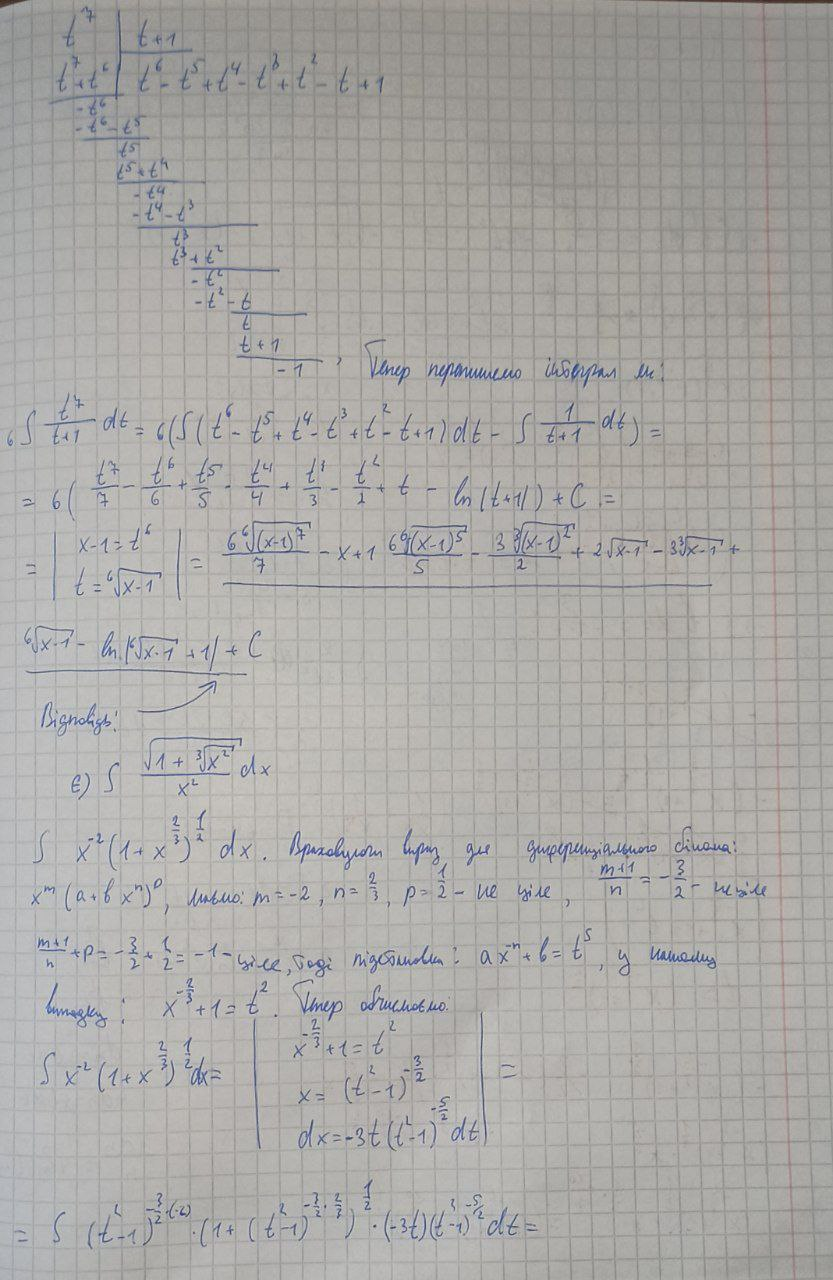 t⁷ | t+1
t⁷+t⁶ | t⁶ - t⁵ + t⁴ - t³ + t² - t + 1
-t⁶
-t⁶ - t⁵
t⁵
t⁵ + t⁴
-t⁴
-t⁴ - t³
t³
t³ + t²
-t²
-t² - t
t
t + 1
-1 , Тепер перепишемо інтеграл як:
6∫ t⁷/(t+1) dt = 6(∫(t⁶ - t⁵ + t⁴ - t³ + t² - t + 1) dt - ∫ 1/(t+1) dt) =
= 6( t⁷/7 - t⁶/6 + t⁵/5 - t⁴/4 + t³/3 - t²/2 + t - ln|t+1|) + C =
= | x-1 = t⁶ ; t = ⁶√(x-1) | = 6⁶√((x-1)⁷)/7 - x + 1 6⁶√((x-1)⁵)/5 - 3³√((x-1)²)/2 + 2√(x-1) - 3³√(x-1) +
⁶√(x-1) - ln|⁶√(x-1) + 1| + C
Відповідь:
є) ∫ √(1 + ³√(x²))/x² dx
∫ x⁻²(1 + x^(2/3))^(1/2) dx. Враховуючи вираз для диференціального бінома:
x^m (a + b x^n)^p, маємо: m = -2, n = 2/3, p = 1/2 - не ціле, (m+1)/n = -3/2 - не ціле
(m+1)/n + p = -3/2 + 1/2 = -1 - ціле, тоді підстановка: a x^(-n) + b = t^s, у нашому
випадку: x^(-2/3) + 1 = t². Тепер обчислюємо:
∫ x⁻²(1 + x^(2/3))^(1/2) dx = | x^(-2/3) + 1 = t² ; x = (t² - 1)^(-3/2) ; dx = -3t(t² - 1)^(-5/2) dt | =
= ∫ (t² - 1)^(-3/2·(-2)) · (1 + (t² - 1)^(-3/2·2/3))^(1/2) · (-3t)(t³ - 1)^(-5/2) dt =